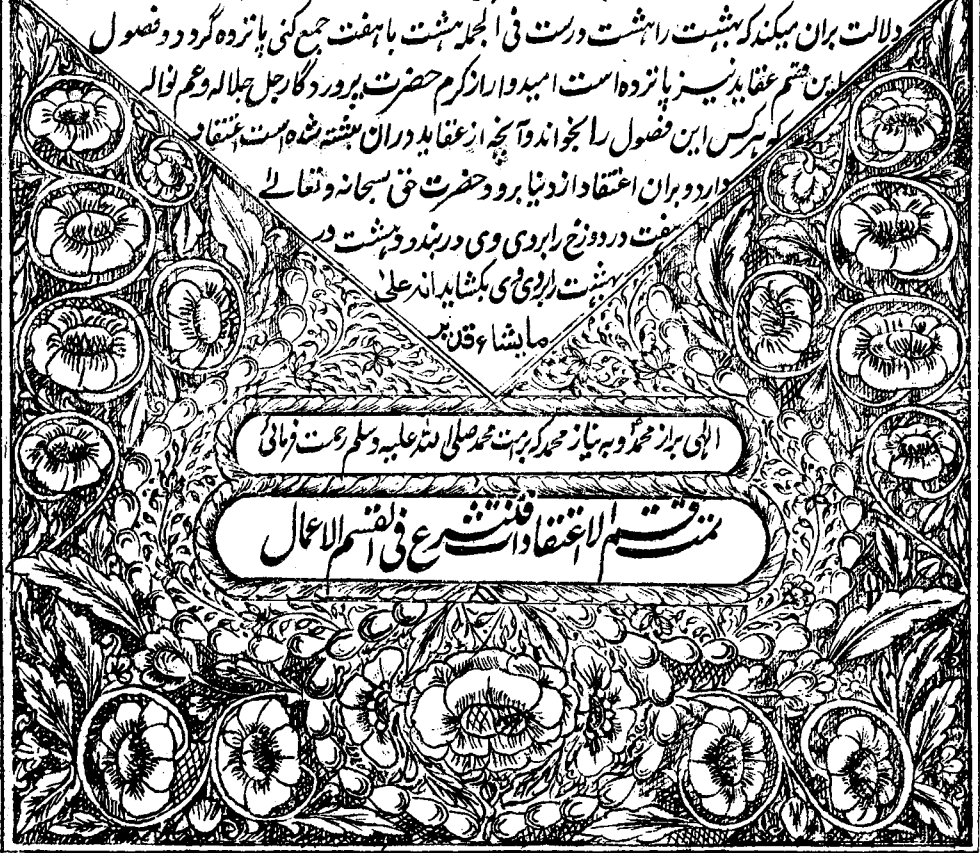 دلالت بران میکند که بهشت را هشت درست فی الجمله هشت با هفت جمع کنی پانزده گردد و فصول
این قسم عقاید نیز پانزده است امیدوار از کرم حضرت پروردگار جل جلاله و عم نواله
که هر کس این فصول را بخواند و آنچه از عقاید در آن نبشته شده است اعتقاد
دارد و بران اعتقاد از دنیا برود حضرت حق سبحانه و تعالے
هفت در دوزخ را بروی وی در بندد و هشت در
بهشت را بروی وی بکشاید انه علی
ما یشاء قدیر
الهی براز محمد و به نیاز محمد که بر امت محمد صلی الله علیه وسلم رحمت فرمائی
تمت قسم الاعتقادات فلنشرع فی القسم الاعمال